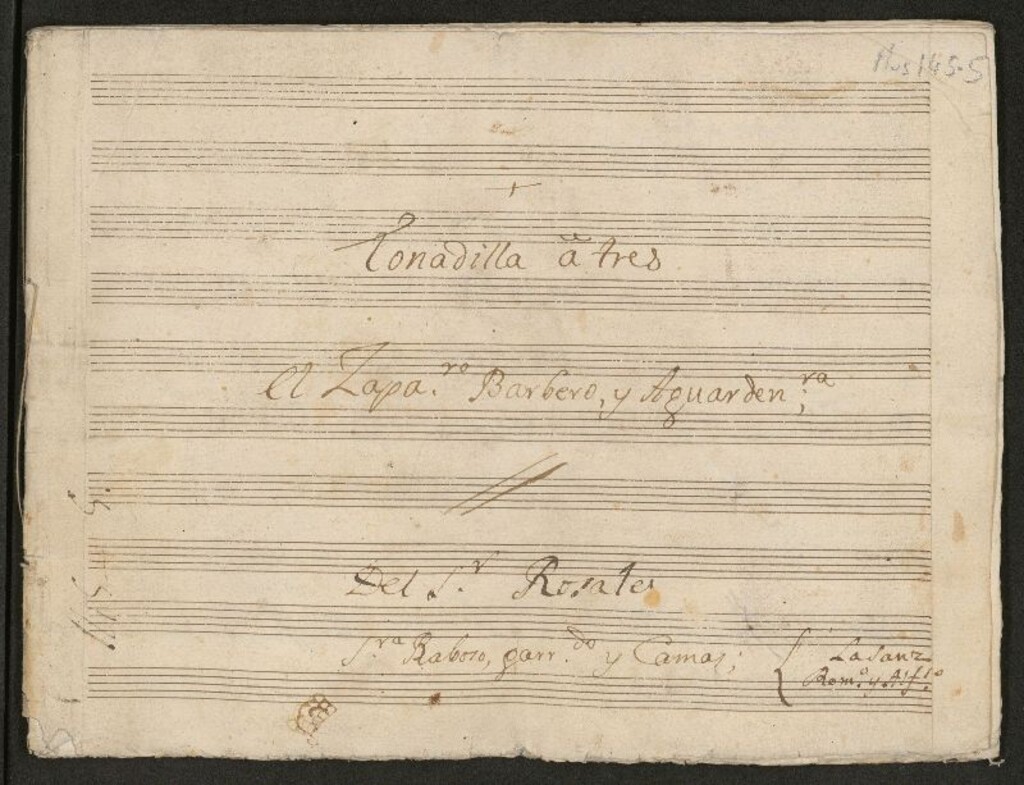 Mus 145-5
Tonadilla â tres
El Zapa.ro Barbero, y Aguarden.ra;
Del S.r Rosales
S.ra Raboso, garr.do y Camas; { La Sanz
Rom.o y Alf.so